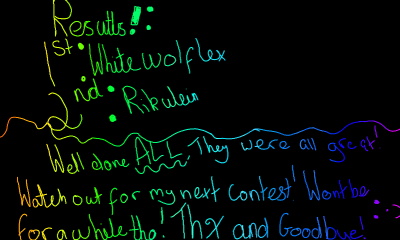 Results!:
1st: Whitewolflex
2nd: Rikulein
Well done ALL They were all great!
Watch out for my next contest! Wont be
for a while tho! Thx and Goodbye!